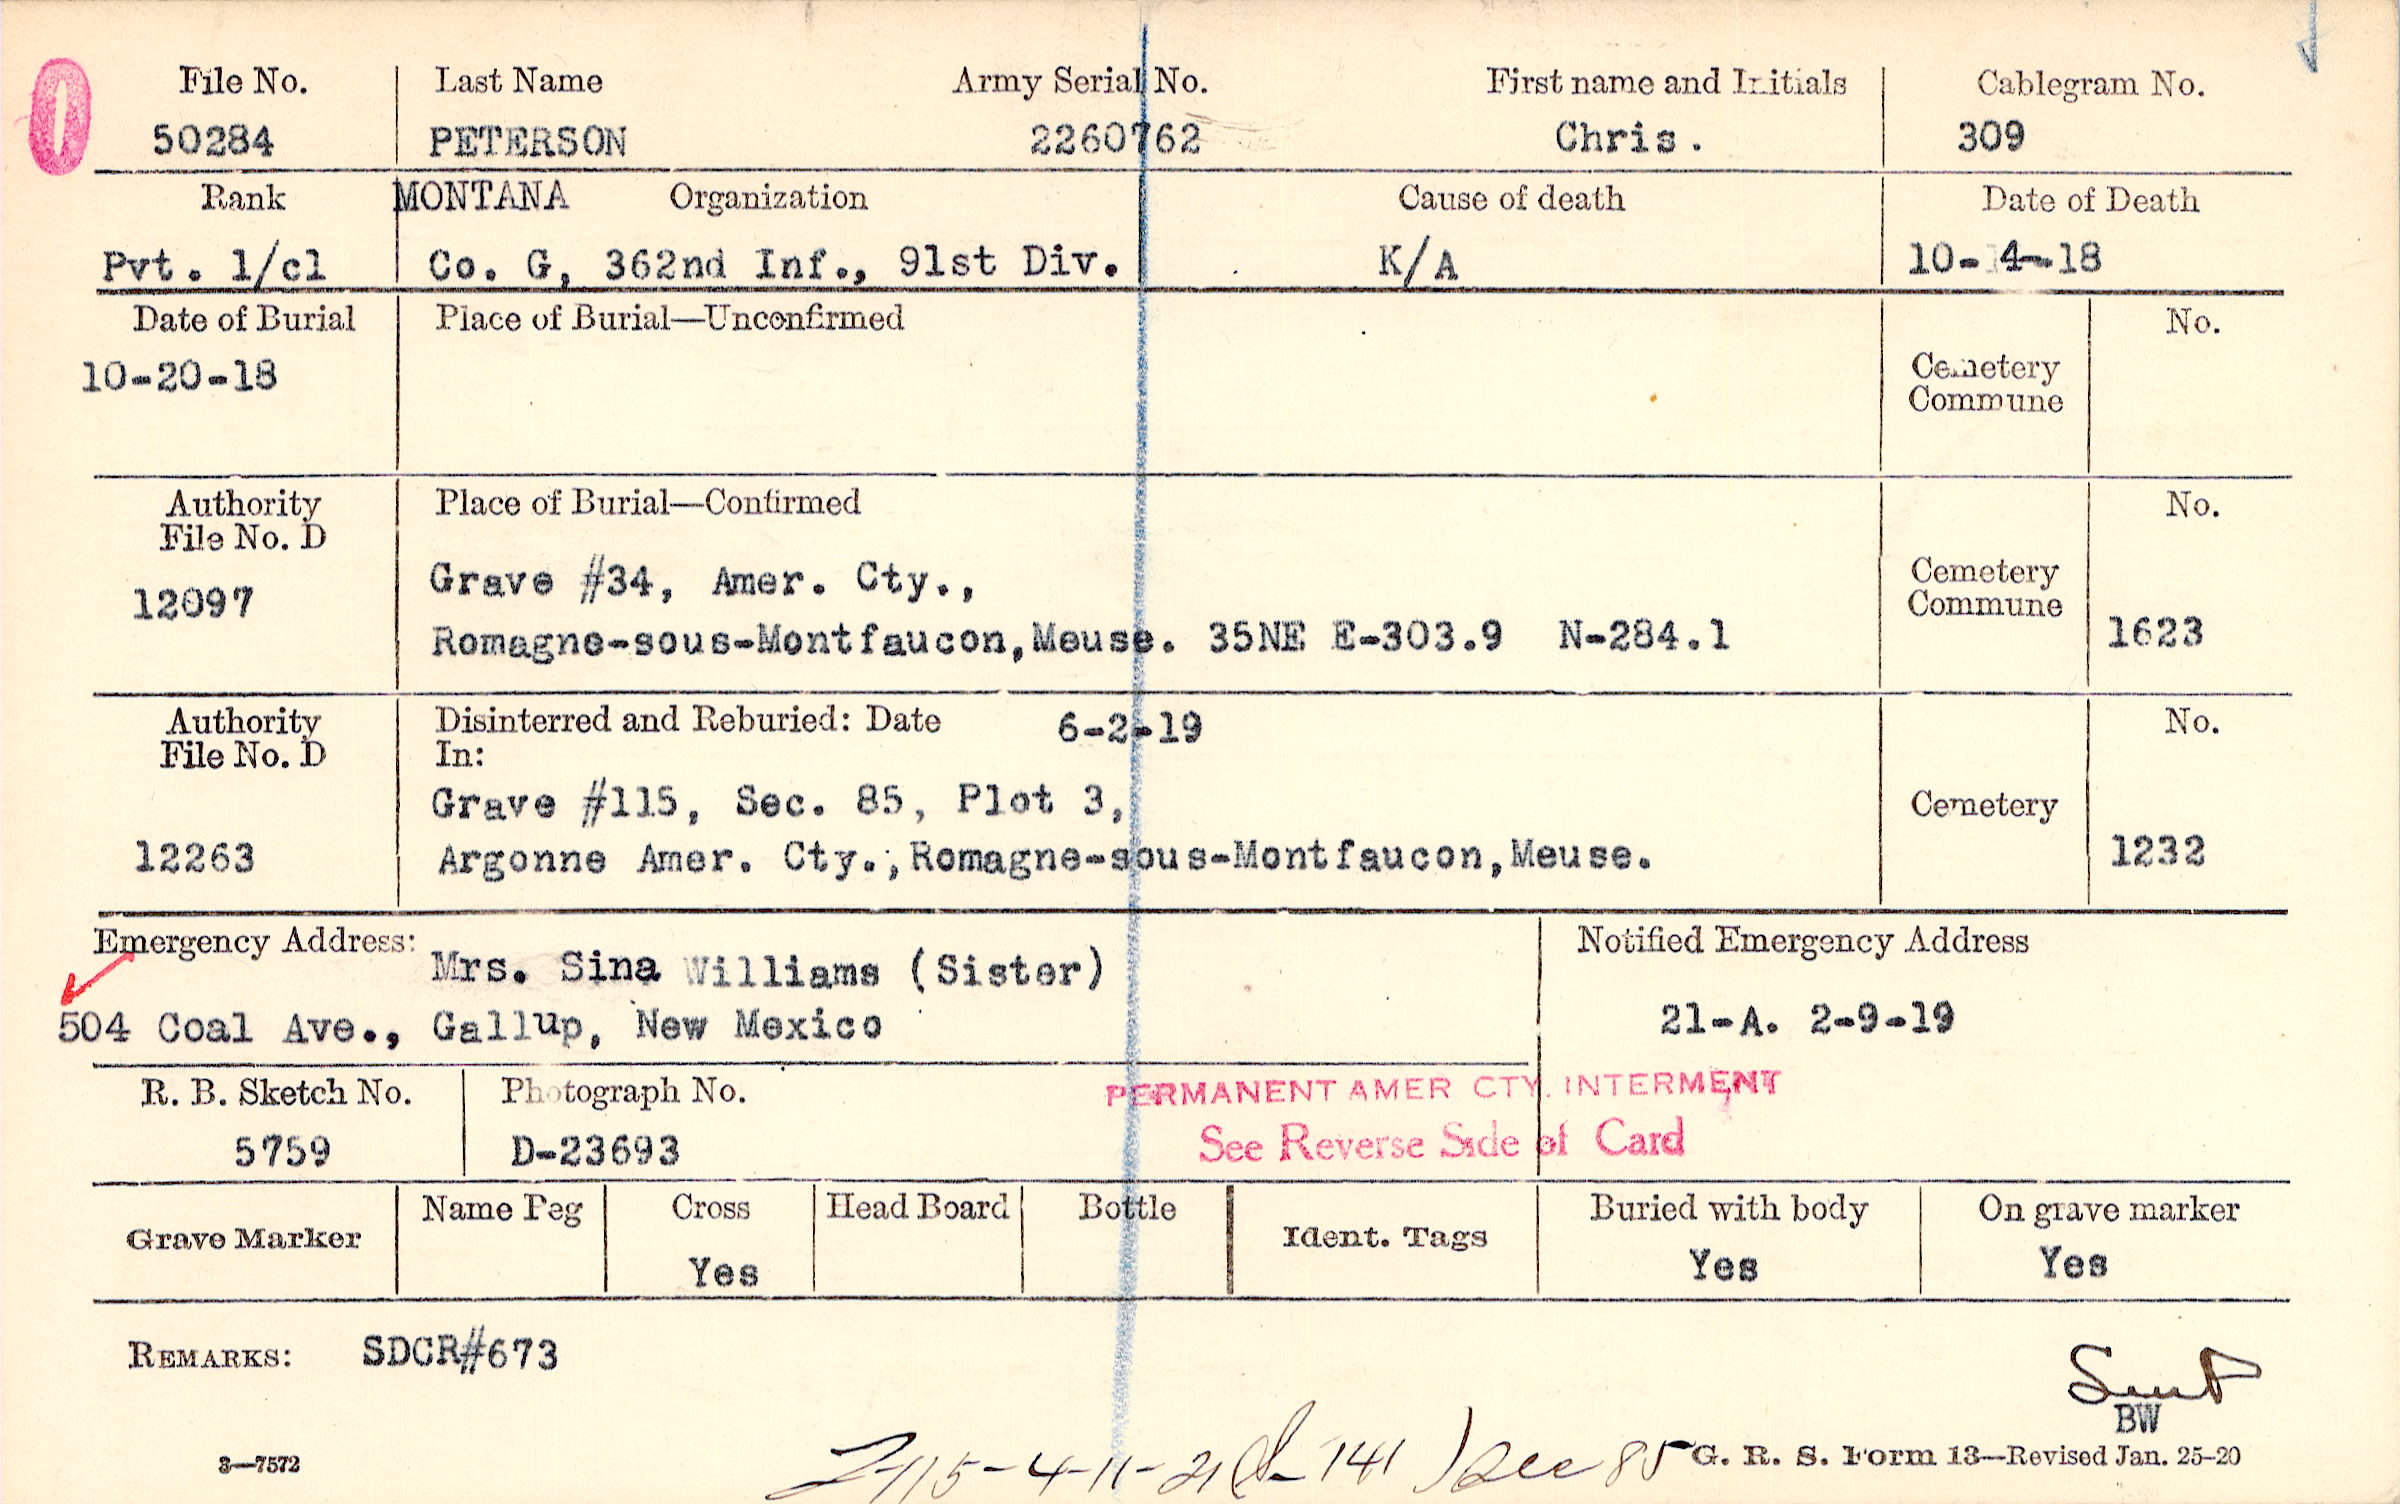 0
File No. Last Name Army Serial No. First name and Initials Cablegram No.
50284 PETERSON 2260762 Chris. 309
Rank MONTANA Organization Cause of death Date of Death
Pvt. 1/cl Co. G, 362nd Inf., 91st Div. K/A 10- 4-18
Date of Burial Place of Burial—Unconfirmed No.
10-20-18
Cemetery
Commune
Authority Place of Burial—Confirmed No.
File No. D
12097 Grave #34, Amer. Cty., Cemetery
Commune
Romagne-sous-Montfaucon,Meuse. 35NE E-303.9 N-284.1 1623
Authority Disinterred and Reburied: Date 6-2-19 No.
File No. D In:
Grave #115, Sec. 85, Plot 3, Cemetery
12263 Argonne Amer. Cty.,Romagne-sous-Montfaucon,Meuse. 1232
Emergency Address: Mrs. Sina Williams (Sister) Notified Emergency Address
504 Coal Ave., Gallup, New Mexico 21-A. 2-9-19
R. B. Sketch No. Photograph No. PERMANENT AMER CTY. INTERMENT
5759 D-23693 See Reverse Side of Card
Grave Marker Name Peg Cross Head Board Bottle Ident. Tags Buried with body On grave marker
Yes Yes Yes
REMARKS: SDCR#673
BW
3—7572 see 85 G. R. S. Form 13—Revised Jan. 25-20